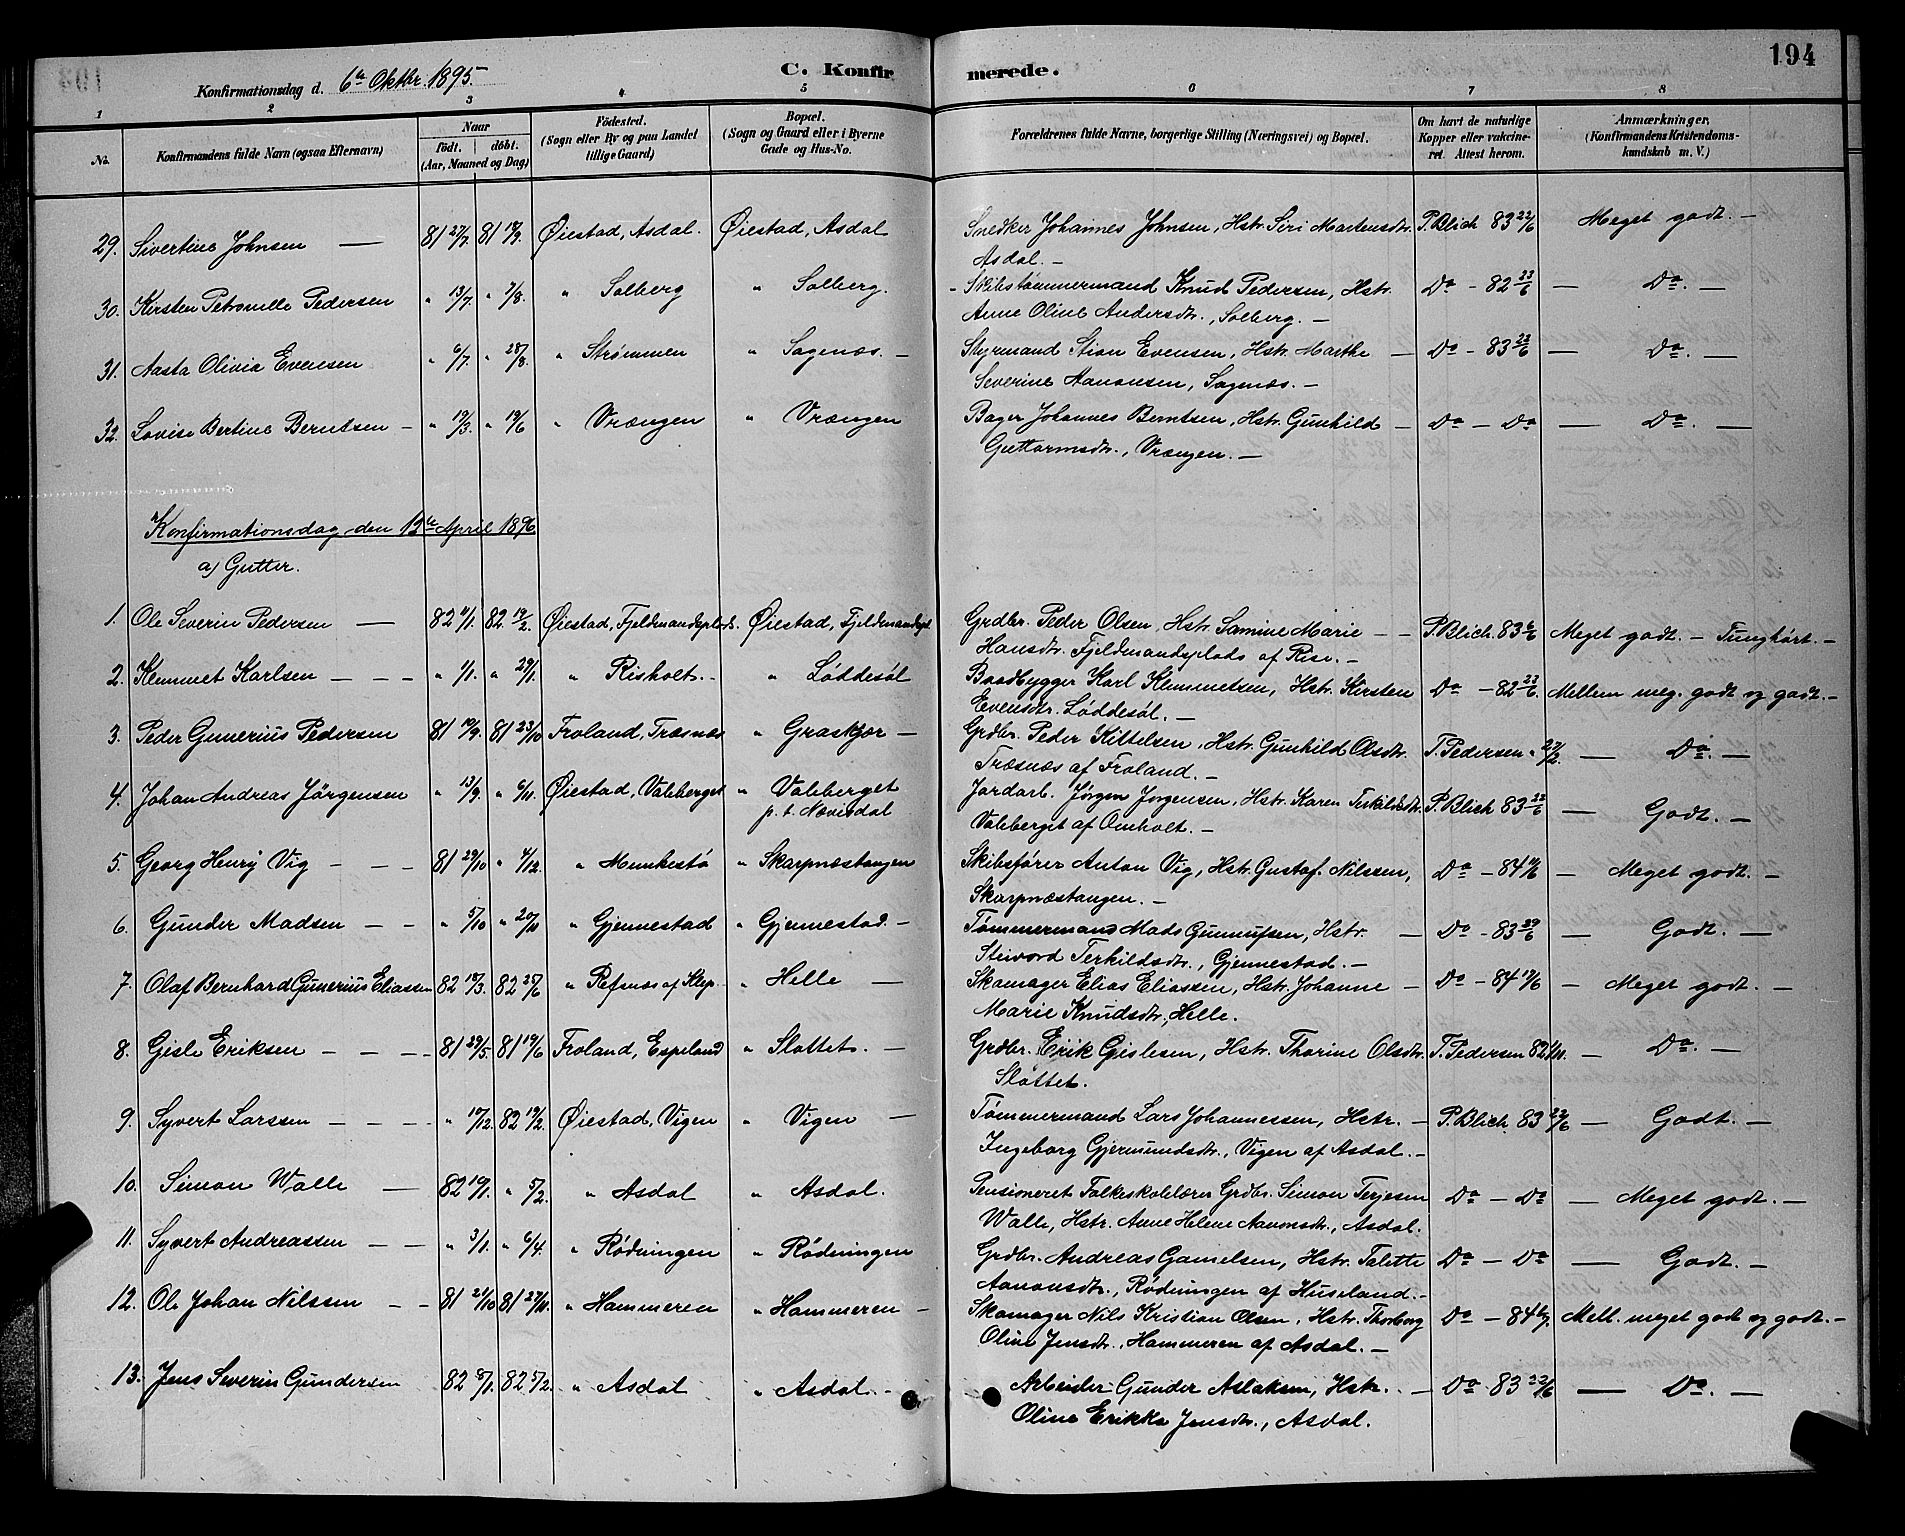 194
Konfirmationsdag d. 6te Oktbr. 1895.
C. Konfirmerede.
1 2 3 4 5 6 7 8
No. Konfirmandens fulde Navn (ogsaa Efternavn) Naar født. døbt. (Aar, Maaned og Dag) Fødested. (Sogn eller By og paa Landet tillige Gaard) Bopæl. (Sogn og Gaard eller i Byerne Gade og Hus-No. Forældrenes fulde Navne, borgerlige Stilling (Næringsvei) og Bopæl. Om havt de naturlige Kopper eller vakcineret. Attest herom. Anmærkninger, (Konfirmandens Kristendomskundskab m. V.)
29. Sivertine Johnsen — 81 27/7. 81 18/9. Øiestad, Asdal. Øiestad, Asdal Snedker Johannes Johnsen, Hstr. Siri Martensdtr. P. Blich 83 22/6 Meget godt. —
Asdal. —
30. Kirsten Petronelle Pedersen " 13/7. " 7/8. " Solberg " Solberg. - Skibstømmermand Knud Pedersen, Hstr. Do - 82 23/6 — Do. —
Anne Oline Andersdtr., Solberg. —
31. Aasta Olivia Evensen " 6/7. " 28/8. " Strømmen " Sagenæs. — Styrmand Stian Evensen, Hstr. Marthe — Do - 83 22/6 — Do. —
Severine Aanonsen, Sagenæs. —
32. Lovise Bertine Berntsen - " 19/3. " 19/6 " Vrængen " Vrængen Bager Johannes Berntsen, Hstr. Gunhild — Do - Do — Do. —
Guttormsdtr., Vrængen. —
Konfirmationsdag den 12te April 1896
a) Gutter.
1. Ole Severin Pedersen — 82 11/1. 82 19/2. Øiestad, Fjeldmandsplads. Øiestad, Fjeldmandspl. Grdbr. Peder Olsen, Hstr. Samine Marie - - P. Blich. 83 6/6 Meget godt. — Tunghørt. —
Hansdtr. Fjeldmandsplads af Rise. —
2. Klemmet Karlsen - - - " 1/1. " 29/1. " Risholt. - " Løddesøl Baadbygger Karl Klemmetsen, Hstr. Kirsten Do - 82 23/6. Mellem meg. godt og godt. —
Evensdtr. Løddesøl. —
3. Peder Gunerius Pedersen 81 19/9. 81 23/10 Froland, Træsnæs " Graskjær - Grdbr. Peder Kittelsen, Hstr. Gunhild Olsdtr. T. Pedersen " 27/2. — Do. —
Træsnæs af Froland. —
4. Johan Andreas Jørgensen " 13/9. " 6/11. Øiestad, Valeberget " Valeberget Jordarb. Jørgen Jørgensen, Hstr. Karen Terkildsdtr. P. Blich 83 22/6 — Godt. —
p. t. Nævisdal Valeberget af Omholt. —
5. Georg Henry Vig - - 81 29/10 " 4/12. " Munkestø " Skarpnæstangen Skibsfører Anton Vig, Hstr. Gustaf. Nilssen, Do - 84 19/6 - Meget godt. —
Skarpnæstangen. —
6. Gunder Madsen - - " 5/10 " 20/11 " Gjennestad " Gjennestad. - Tømmermand Mads Gunnufsen, Hstr. — Do - 83 29/6 — Godt. —
Steivord Terkildsdtr., Gjennestad. —
7. Olaf Bernhard Gunerius Eliassen 82 18/3. 82 25/6 " Refsnæs af Klep. " Helle — Skomager Elias Eliassen, Hstr. Johanne - Do - 84 19/6 - Meget godt. —
Marie Knudsdtr., Helle.
8. Gisle Eriksen - - - 81 29/5 81 19/6 Froland, Espeland " Slottet. - Grdbr. Erik Gislesen, Hstr. Thorine Olsdtr. T. Pedersen 82 1/11. - Do. —
Slottet.
9. Syvert Larssen - - - " 10/12. 82 19/2. Øiestad, Vigen " Vigen — Tømmermand Lars Johannessen, Hstr. - P. Blich. 83 22/6 — Godt. —
Ingeborg Gjermundsdtr., Vigen af Asdal. —
10. Simon Walle — 82 19/1. " 5/2. " Asdal " Asdal. Pensioneret Folkeskolelærer Grdbr. Simon Terjesen Do - Do — Meget godt. —
Walle, Hstr. Anne Helene Aanonsdtr., Asdal.
11. Syvert Andreassen - - " 3/1. " 6/4. " Rødningen " Rødningen Grdbr. Andreas Gamelsen, Hstr. Talette Do - Do — Godt. —
Aanonsdtr., Rødningen af Huseland. —
12. Ole Johan Nilssen - - 81 21/10 81 27/11. " Hammeren " Hammeren — Skomager Nils Kristian Olsen, Hstr. Thorborg Do - 84 6/7. Mell. meget godt og godt. —
Oline Jensdtr., Hammeren af Asdal. —
13. Jens Severin Gundersen 82 8/1. 82 5/2. " Asdal " Asdal. - Arbeider Gunder Aslaksen, Hstr. - Do - 83 22/6 — Do. —
Oline Erikka Jensdtr., Asdal.